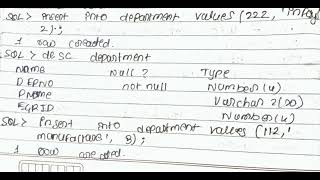 SQL > insert into department values (222,
2);
1 row created.
SQL > desc department
Name Null ? Type
DEPNO not null Number(4)
DName Varchar 2(20)
EGRID Number(4)
SQL > insert into department values (112, '
manufa', 8);
1 row created.